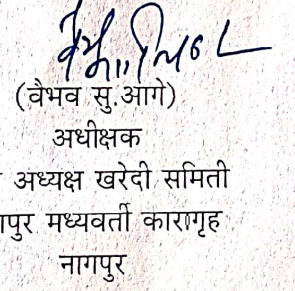 (वैभव सु.आगे)
अधीक्षक
अध्यक्ष खरेदी समिती
पुर मध्यवर्ती कारागृह
नागपुर